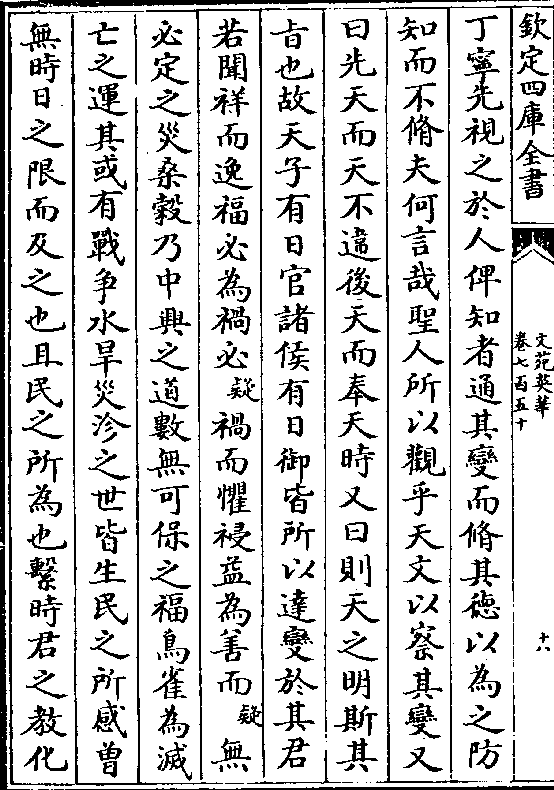 欽定四庫全書
文苑英華
卷七百五十
十六
丁寧先視之於人俾知者通其變而脩其德以為之防
知而不脩夫何言哉聖人所以觀乎天文以察其變又
曰先天而天不違後天而奉天時又曰則天之明斯其
㫖也故天子有日官諸侯有日御皆所以達變於其君
若聞祥而逸福必為禍必疑禍而懼祲益為善而疑無
必定之災桑穀乃中興之道數無可保之福鳥雀為滅
亡之運其或有戰争水旱災沴之世皆生民之所感曽
無時日之限而及之也且民之所為也繫時君之教化